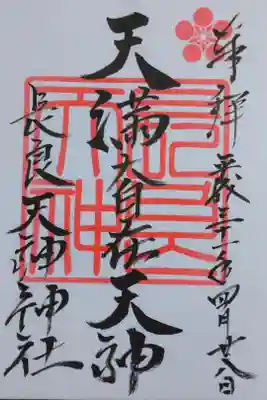 奉拝 平成三十年四月廿八日
天満大自在天神
長良天神神社